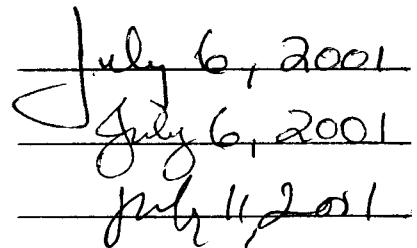 July 6, 2001
July 6, 2001
July 11, 2001